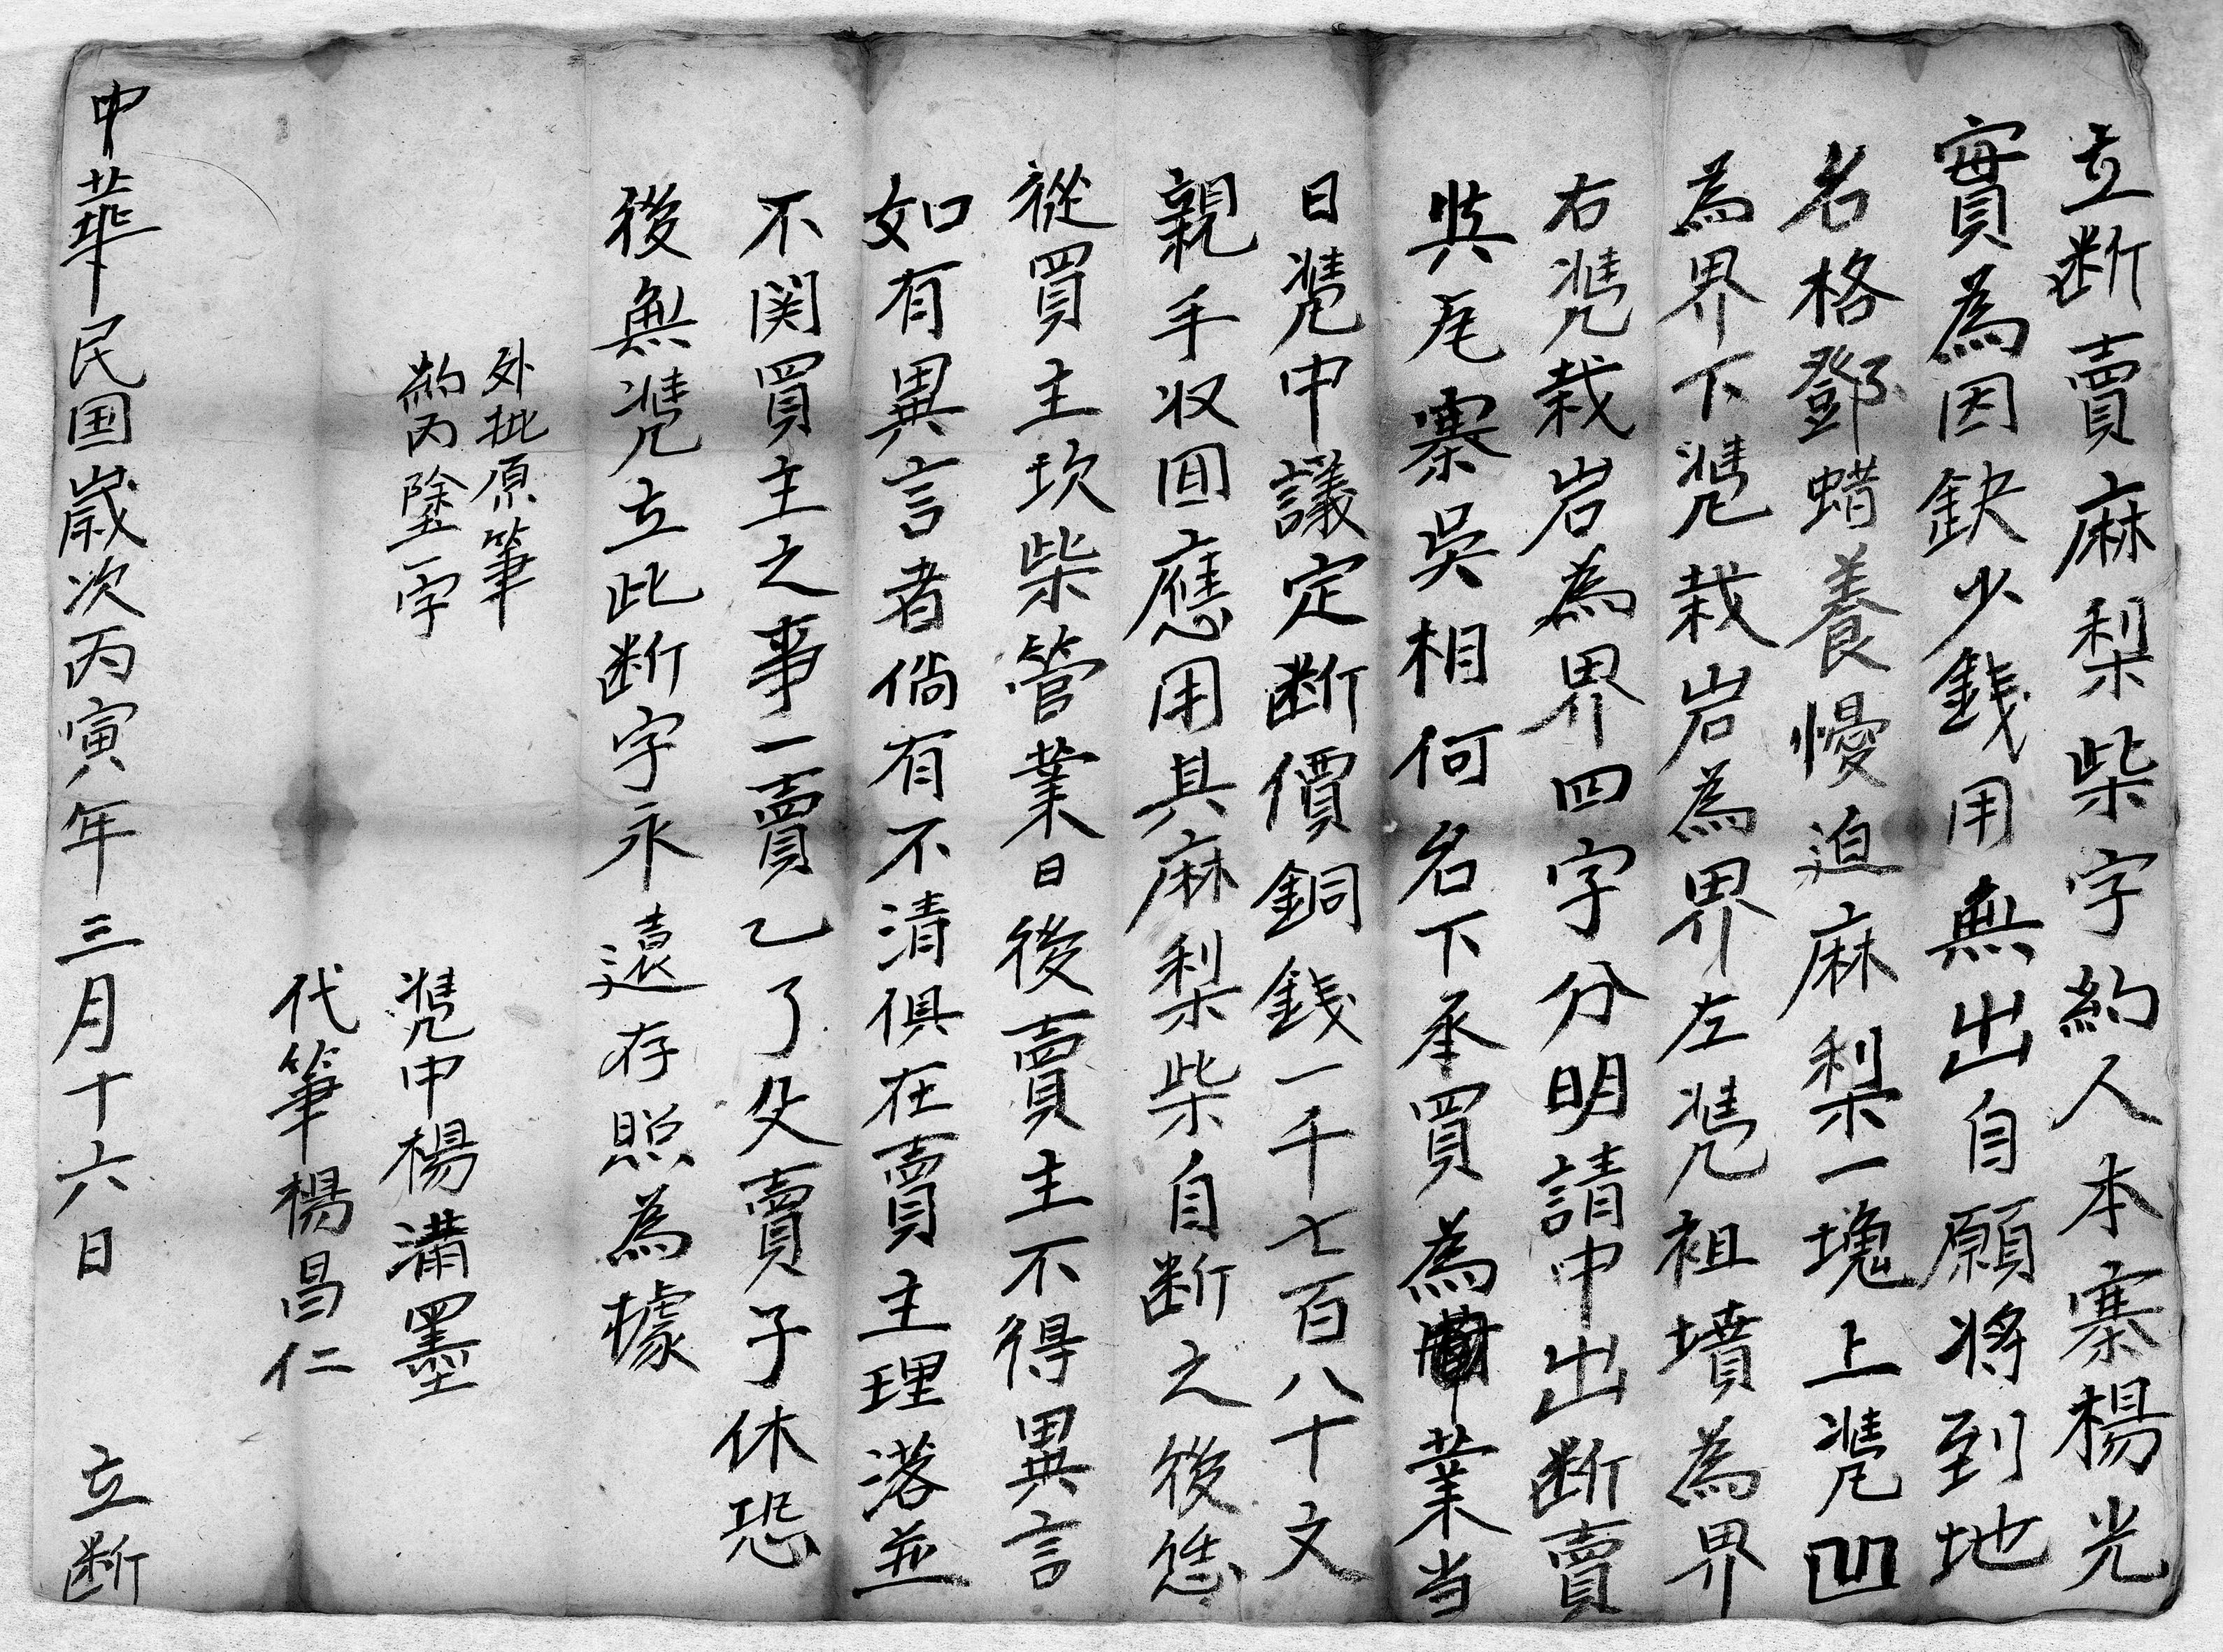 立断賣麻梨柴字約人本寨楊光
實為因缺少銭用無出自願将到地
名格鄧蜡養慢迫麻梨一塊上凴凹
為界下凴栽岩為界左凴祖墳為界
右凴栽岩為界四字分明請中出断賣
與尾寨吳相何名下承買為業当
日凴中議定断價銅銭一千七百八十文
親手収回應用其麻梨柴自断之後恁
從買主坎柴管業日後賣主不得異言
如有異言者倘有不清俱在賣主理落並
不関買主之事一賣乙了父賣子休恐
後無凴立此断字永遠存照為據
外批原筆
約内隂一字
凴中楊溝墨
代筆楊昌仁
中華民国歲次丙寅年三月十六日 立断